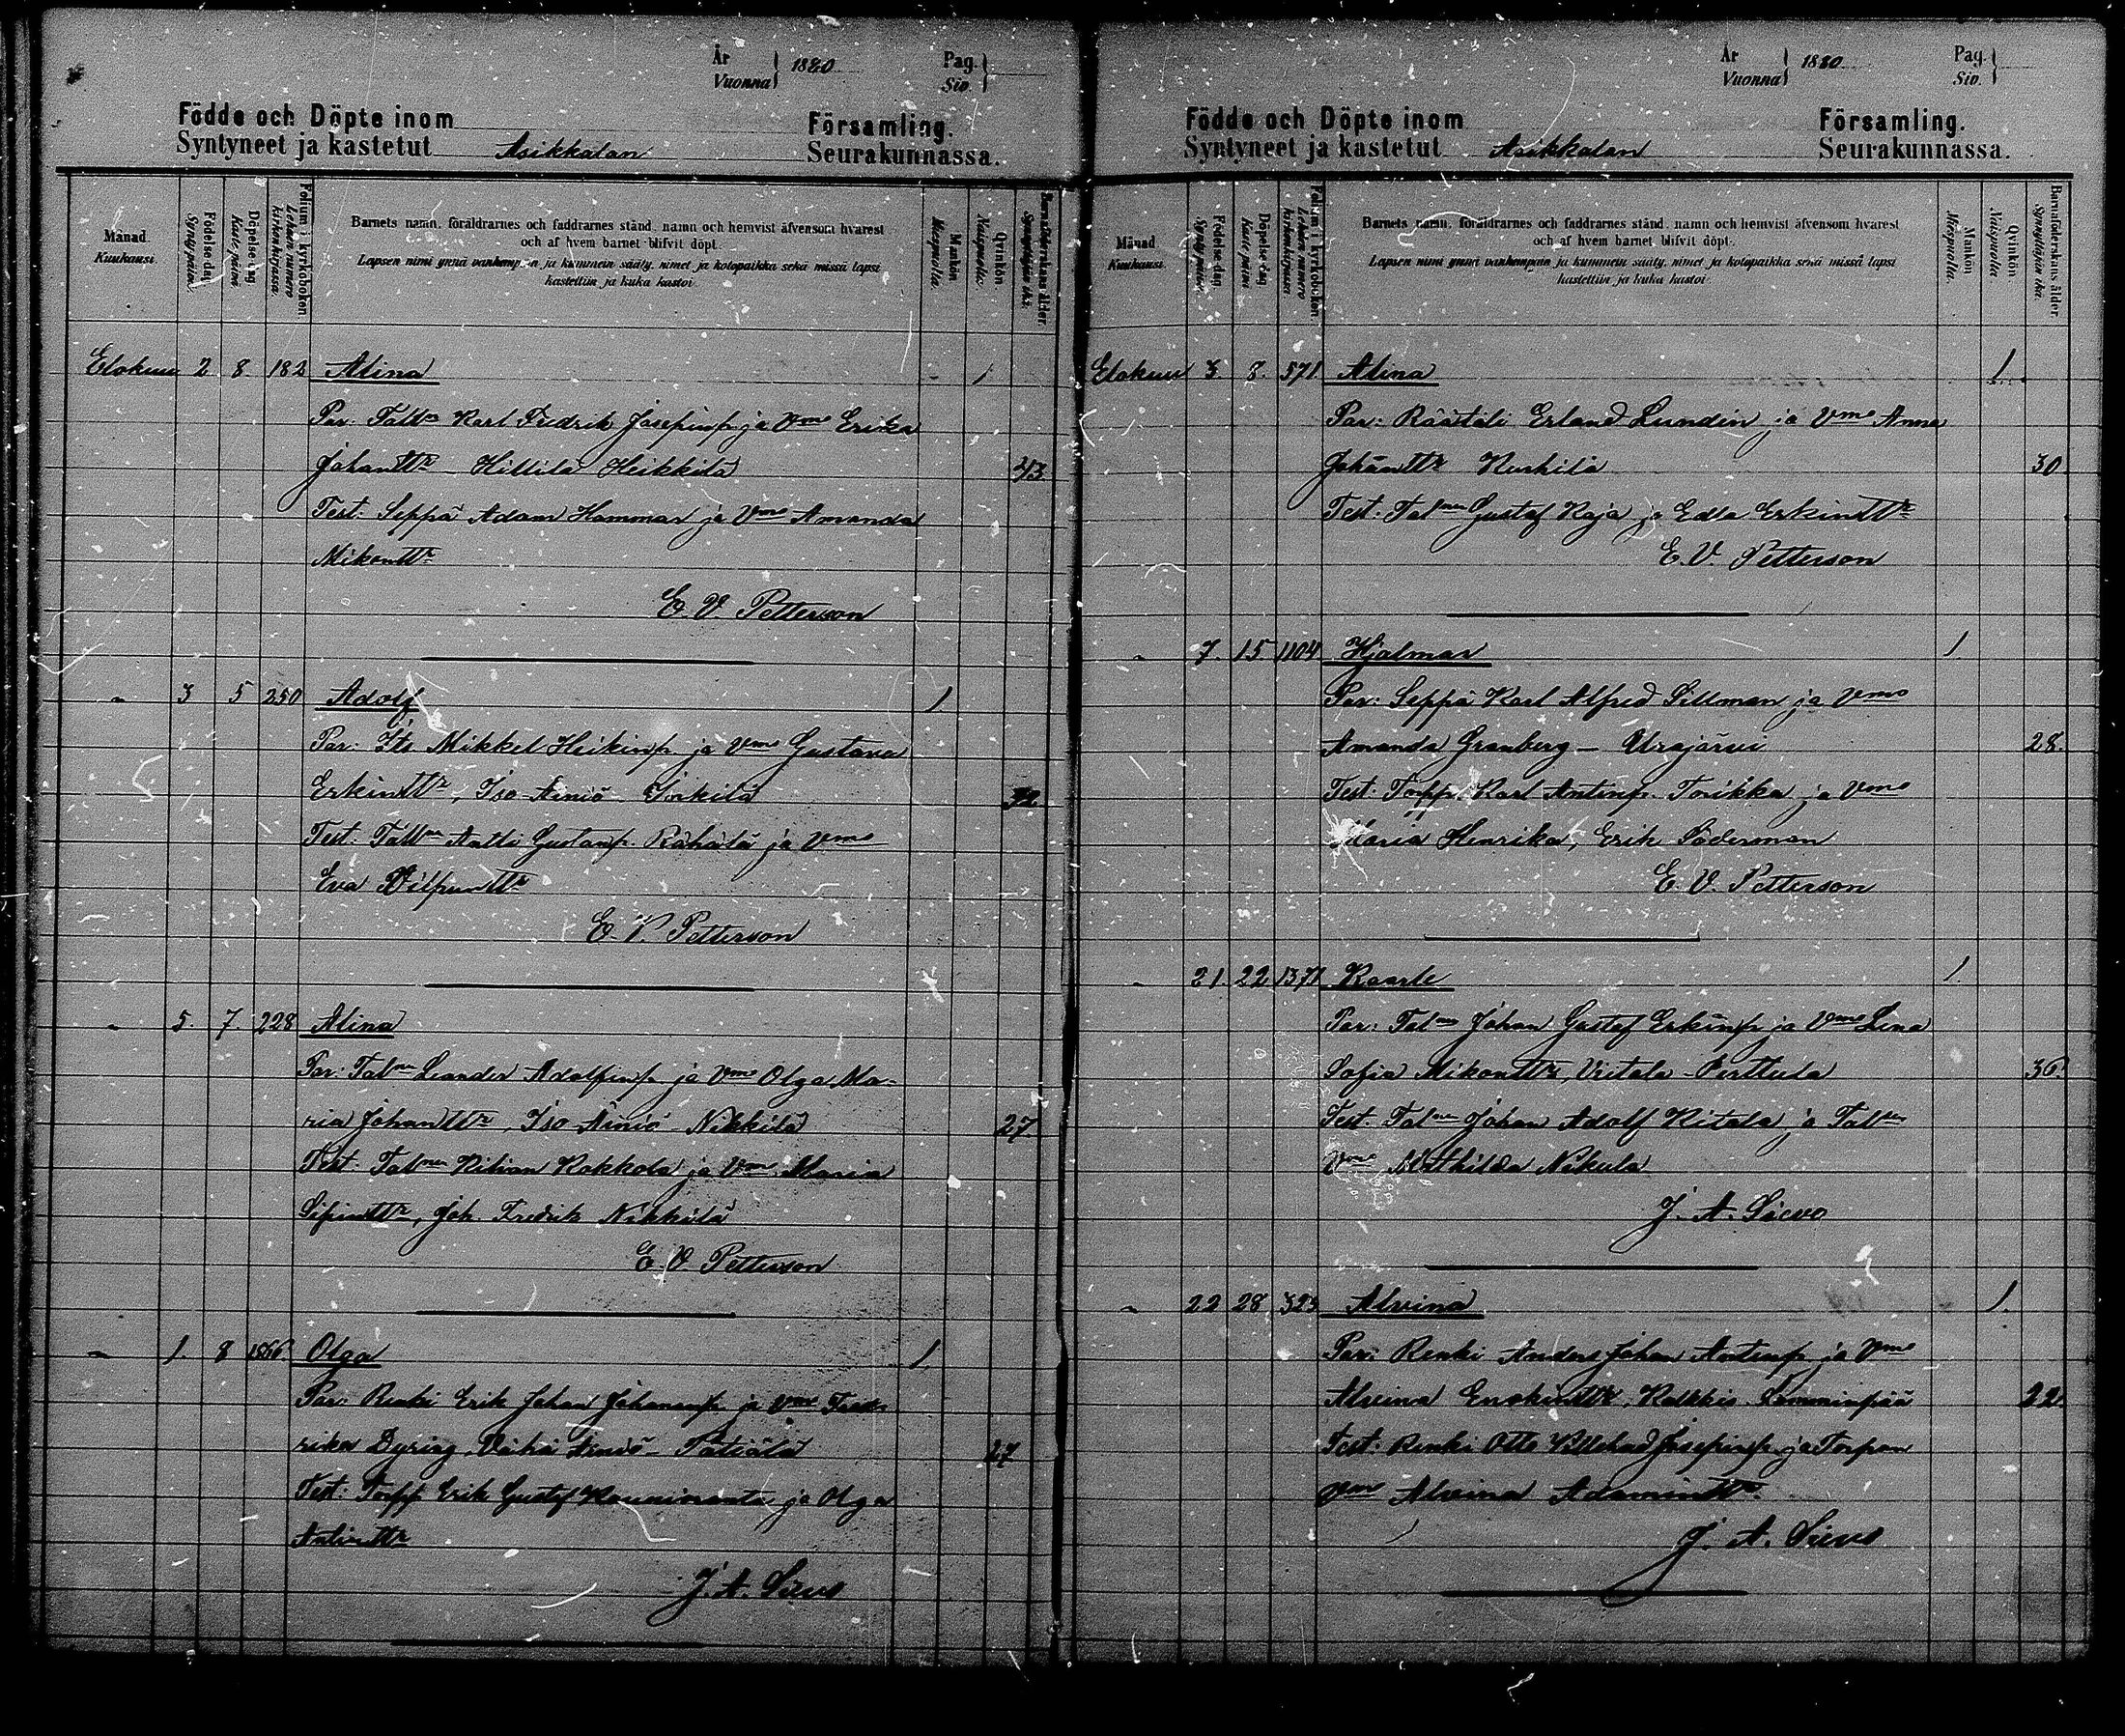 År
Vuonna } 1880
Pag.
Siv. }
Födde och Döpte inom Församling.
Syntyneet ja kastetut Asikkalan Seurakunnassa.
Månad. Kuukausi.
Födelse-dag Syntypäivä.
Döpelse-dag Kaste-päivä
Folium i kyrkoboken. Lehden numero kirkonkirjassa.
Barnets namn, föräldrarnes och faddrarnes stånd, namn och hemvist äfvensom hvarest
och af hvem barnet blifvit döpt.
Lapsen nimi ynnä vanhempain ja kummein sääty, nimet ja kotopaikka sekä missä lapsi
kastettiin ja kuka kastoi.
Mankön Miespuolia.
Qvinkön Naispuolia.
Barnaföderskans ålder. Synnyttäjän ikä.
Elokuu 2 8. 182 Alina 1
Par: Talln Karl Fredrik Josepinp. ja Vmo Erika
Johantr – Hillilä Heikkilä 43
Test: Seppä Adam Hammar ja Vmo Amanda
Mikontr
E. V. Petterson
" 3 5 250 Adolf 1.
Par: Its Mikkel Heikinp. ja Vmo Gustava
Erkintr, Iso-Äiniö
Test: Talln Antti Gustavinp. ja Vmo
Eva
E. V. Petterson
" 5. 7. 228 Alina
Par: Talln Leander Adolfinp. ja Vmo Olga Ma-
ria Johantr, Iso Äiniö – Nikkilä 27.
Test: Talln Kilian Kokkola ja Vmo Maria
Sipintr, Joh. Fredrik Nikkilä
E. V. Petterson
" 1. 8 1866 Olga 1.
Par: Renki Erik Johan Johaninp. ja Vmo Fred-
rika Dyring, Vähä Äiniö – 27
Test: Torpp. Erik Gustaf ja Olga
Antintr
J. A. Sievo
År
Vuonna } 1880
Pag.
Siv. }
Födde och Döpte inom Församling.
Syntyneet ja kastetut Asikkalan Seurakunnassa.
Månad Kuukausi.
Födelse-dag Syntypäivä.
Döpelse-dag Kastepäivä
Folium i kyrkoboken. Lehden numero kirkonkirjassa
Barnets namn, föräldrarnes och faddrarnes stånd, namn och hemvist äfvensom hvarest
och af hvem barnet blifvit döpt.
Lapsen nimi ynnä vanhempain ja kummein sääty, nimet ja kotopaikka sekä missä lapsi
kastettiin ja kuka kastoi.
Mankön Miespuolia.
Qvinkön Naispuolia.
Barnaföderskans ålder Synnyttäjän ikä.
Elokuu 3. 8. 571. Alina 1.
Par: Räätäli Erland Lundin ja Vmo Anna
Johantr Kurhila 30
Test: Talmen Gustaf Raja ja Edla Erkintr
E. V. Petterson
" 7. 15 1104 Hjalmar 1.
Par: Seppä Karl Alfred Sillman ja Vmo
Amanda Granberg – Urajärvi 28.
Test: Torpp. Karl Antinp. Torikka ja Vmo
Maria Henrika, Erik Söderman
E. V. Petterson
" 21. 22 1371 Kaarle 1.
Par: Talmen Johan Gustaf Erkinp. ja Vmo Lena
Sofia Mikontr, Viitala – Perttula 36.
Test: Talmen Johan Adolf Kitala ja Tallen
Vmo Mathilda Nikula
J. A. Sievo
" 22 28 323 Alvina 1.
Par: Renki Anders Johan Antinp. ja Vmo
Alvina, Kalkkis. Lamminpää 22.
Test: Renki Otto Villehad Josepinp. ja Torpan
Vmo Alvina Adamintr.
J. A. Sievo